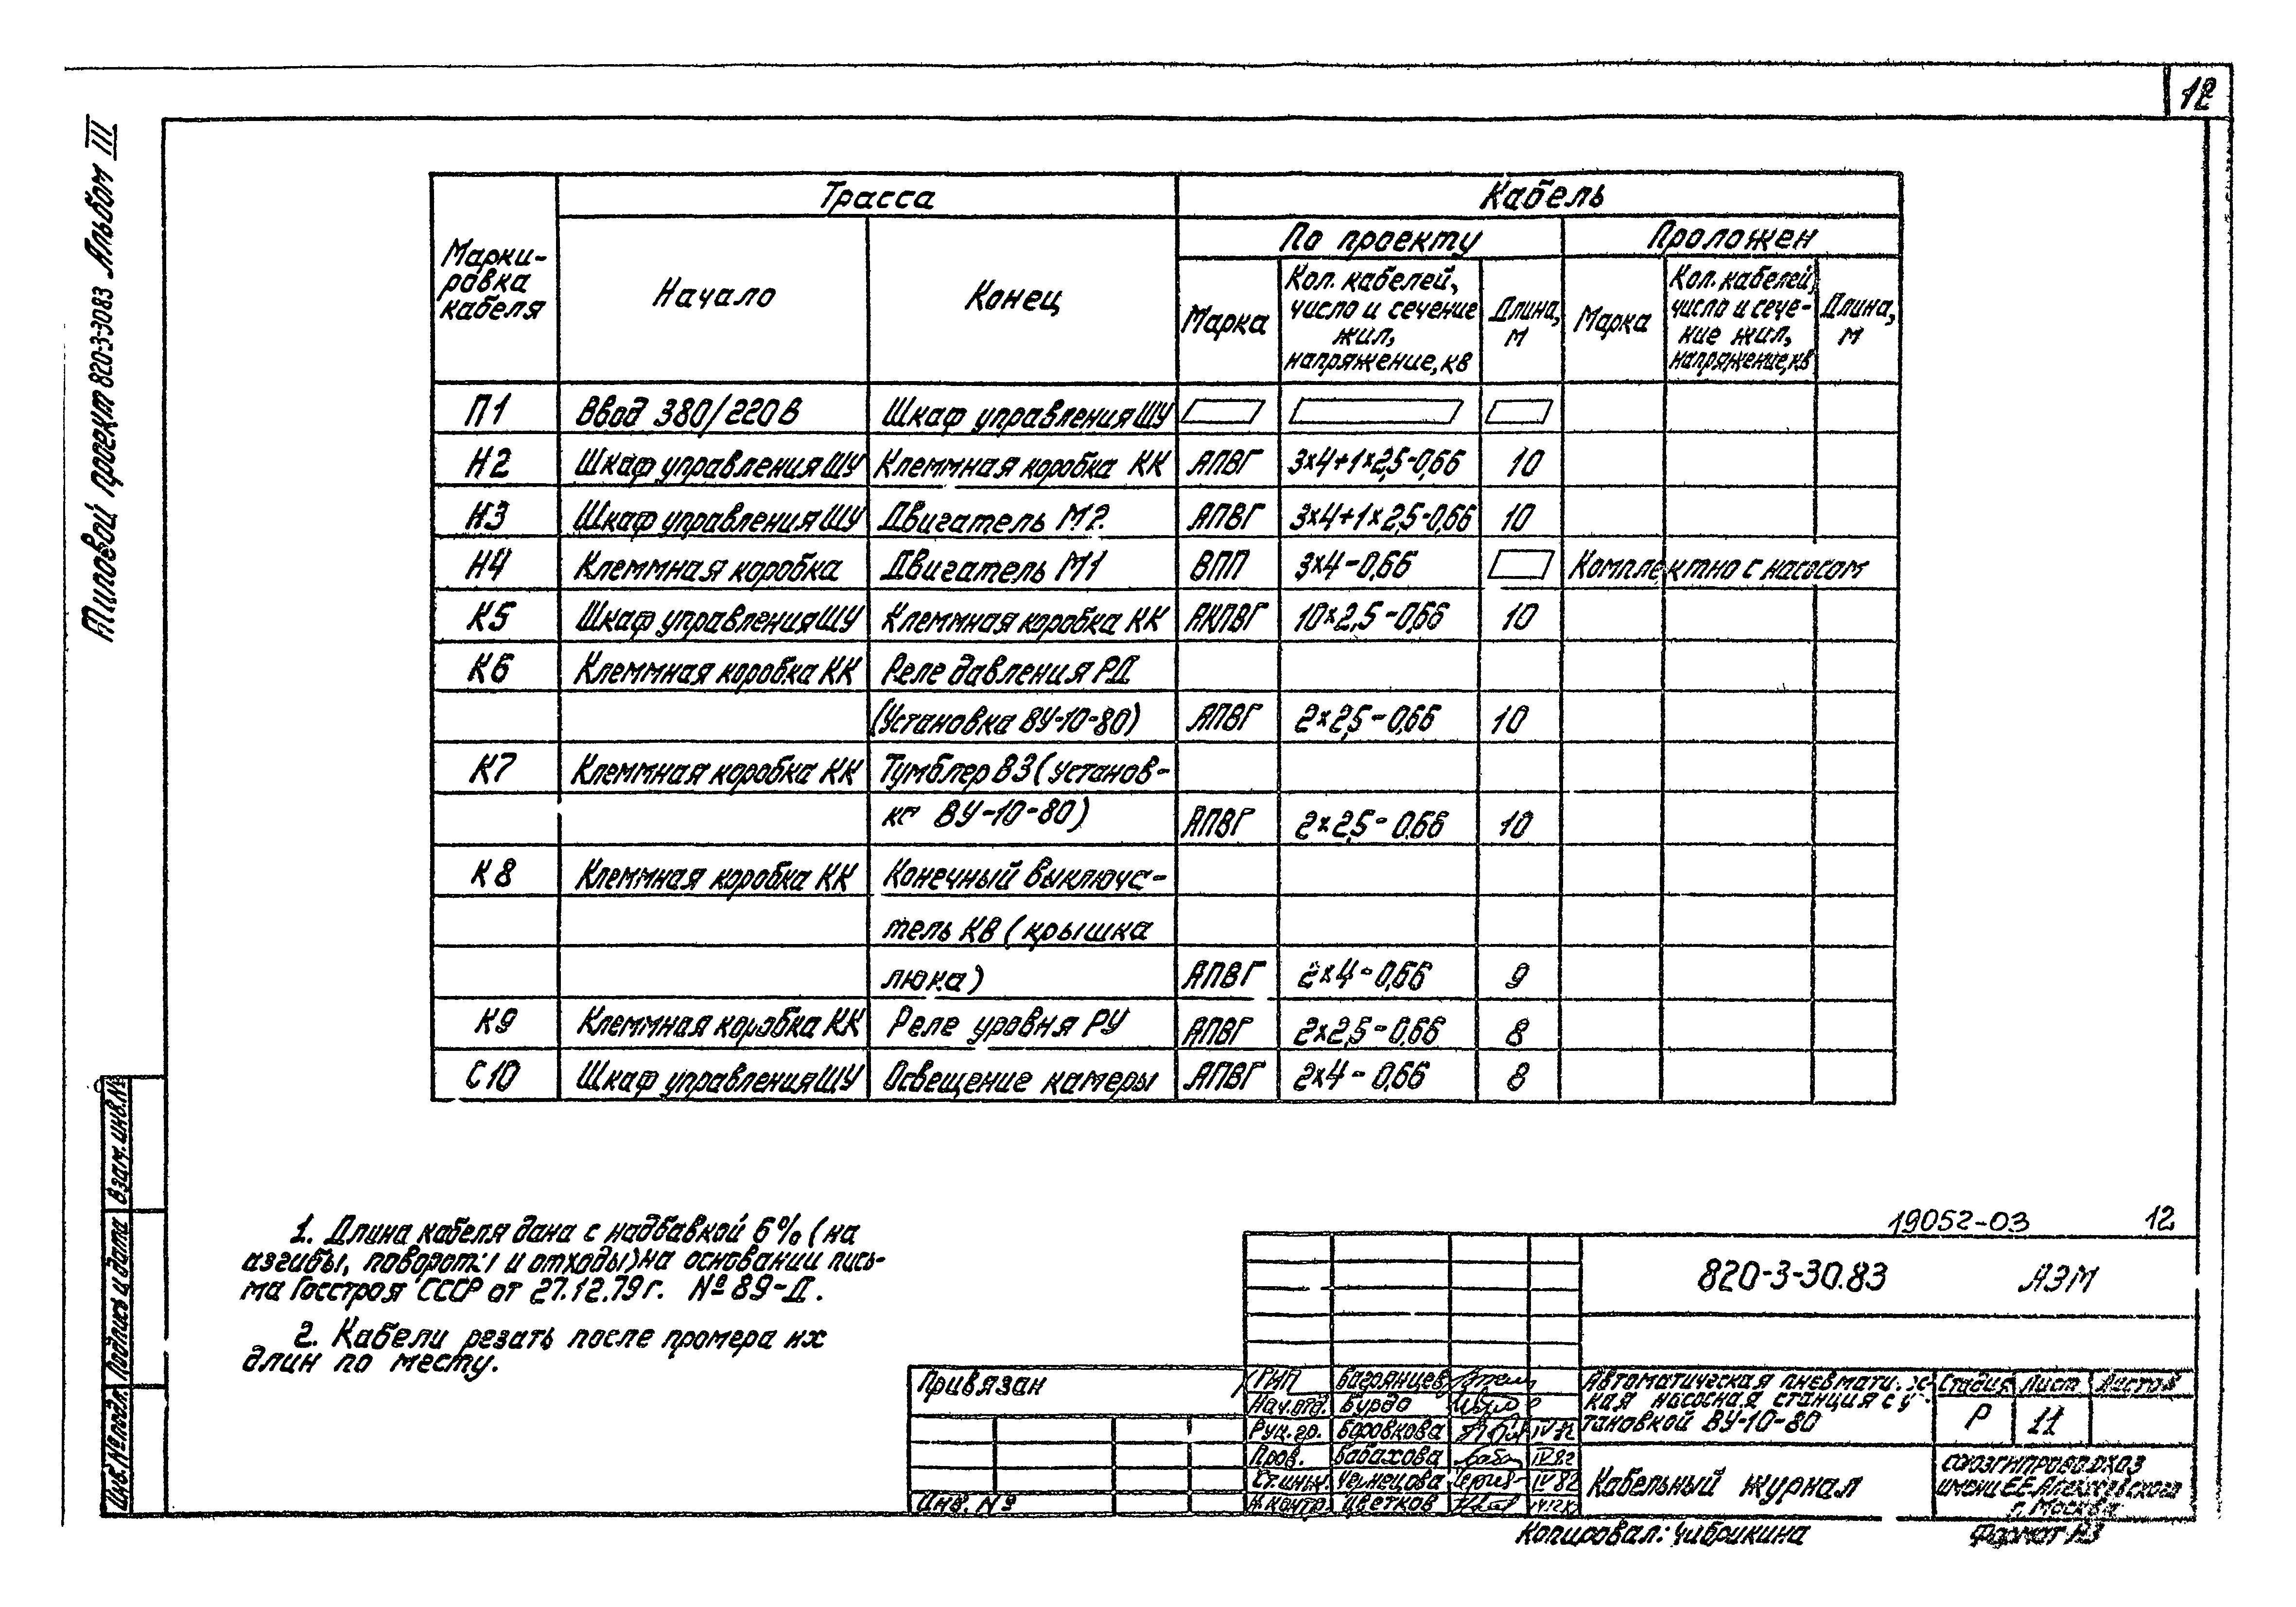 12
Типовой проект 820-3-30.83 Альбом III
Марки-
ровка
кабеля
Трасса
Кабель
Начало
Конец
По проекту
Проложен
Марка
Кол. кабелей,
число и сечение
жил,
напряжение, кв
Длина,
м
Марка
Кол. кабелей,
число и сече-
ние жил,
напряжение, кв
Длина,
м
П1 Ввод 380/220В Шкаф управления ШУ
Н2 Шкаф управления ШУ Клеммная коробка КК АПВГ 3×4+1×2,5-0,66 10
Н3 Шкаф управления ШУ Двигатель М2 АПВГ 3×4+1×2,5-0,66 10
Н4 Клеммная коробка Двигатель М1 ВПП 3×4-0,66 Комплектно с насосом
К5 Шкаф управления ШУ Клеммная коробка КК АКПВГ 10×2,5-0,66 10
К6 Клеммная коробка КК Реле давления РД
(Установка ВУ-10-80) АПВГ 2×2,5-0,66 10
К7 Клеммная коробка КК Тумблер В3 (установ-
ка ВУ-10-80) АПВГ 2×2,5-0,66 10
К8 Клеммная коробка КК Конечный выключа-
тель КВ (крышка
люка) АПВГ 2×4-0,66 9
К9 Клеммная коробка КК Реле уровня РУ АПВГ 2×2,5-0,66 8
С10 Шкаф управления ШУ Освещение камеры АПВГ 2×4-0,66 8
1. Длина кабеля дана с надбавкой 6% (на
изгибы, повороты и отходы) на основании пись-
ма Госстроя СССР от 27.12.79г. № 89-Д.
2. Кабели резать после промера их
длин по месту.
Взам. инв. №
Подпись и дата
Инв. № подл.
19052-03 12
820-3-30.83 АЭМ
Привязан
Инв. №
ГИП Багрянцев
Нач. отд. Бурдо
Рук. гр. Боровкова IV 82
Пров. Бабахова IV 82
Ст. инж. Чернецова IV 82
Н. контр. Цветков
Автоматическая пневматичес-
кая насосная станция с ус-
тановкой ВУ-10-80
Стадия Лист Листов
Р 11
Кабельный журнал
СОЮЗГИПРОВОДХОЗ
имени Е.Е. Алексеевского
г. Москва
Копировал: Чибрикина
Формат А3